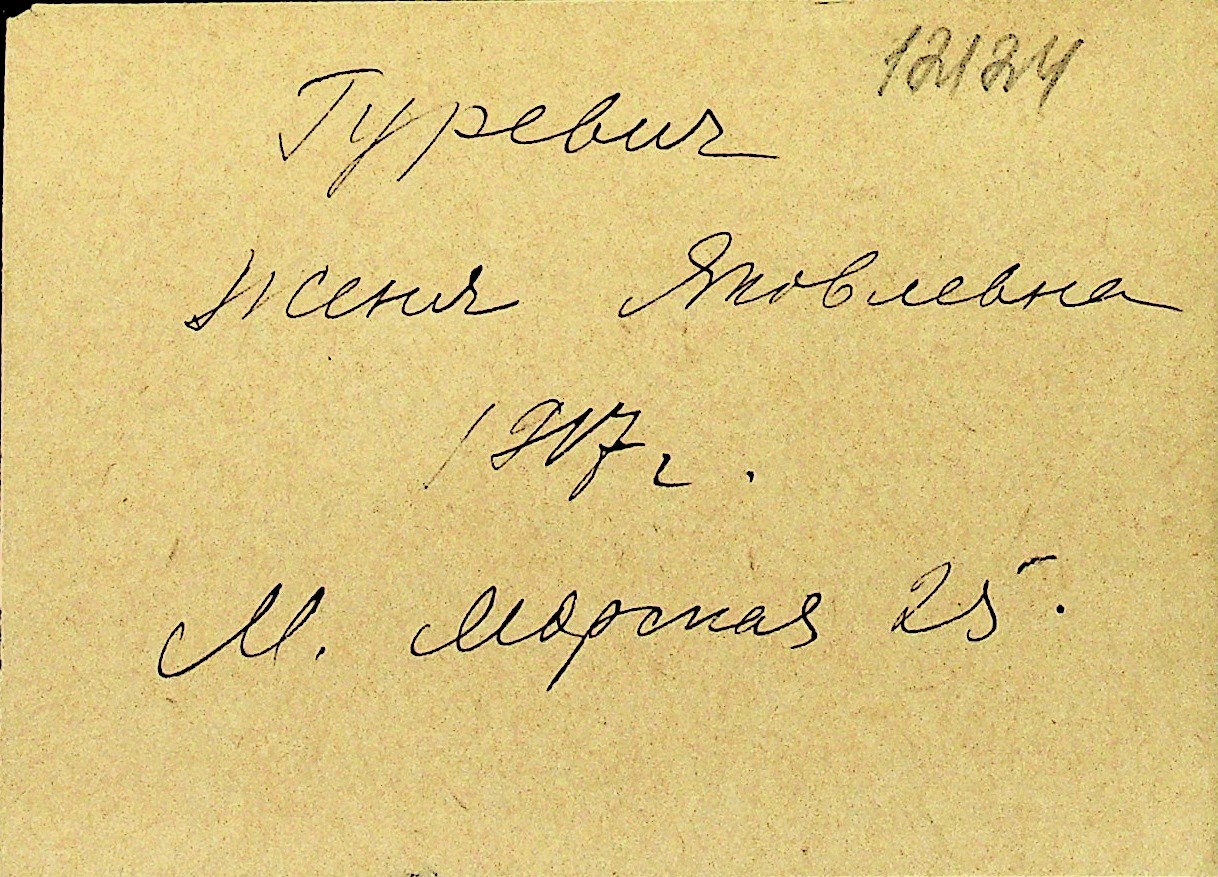 12124
Гуревич
Женя Яковлевна
1917 г.
М. Морская 25.